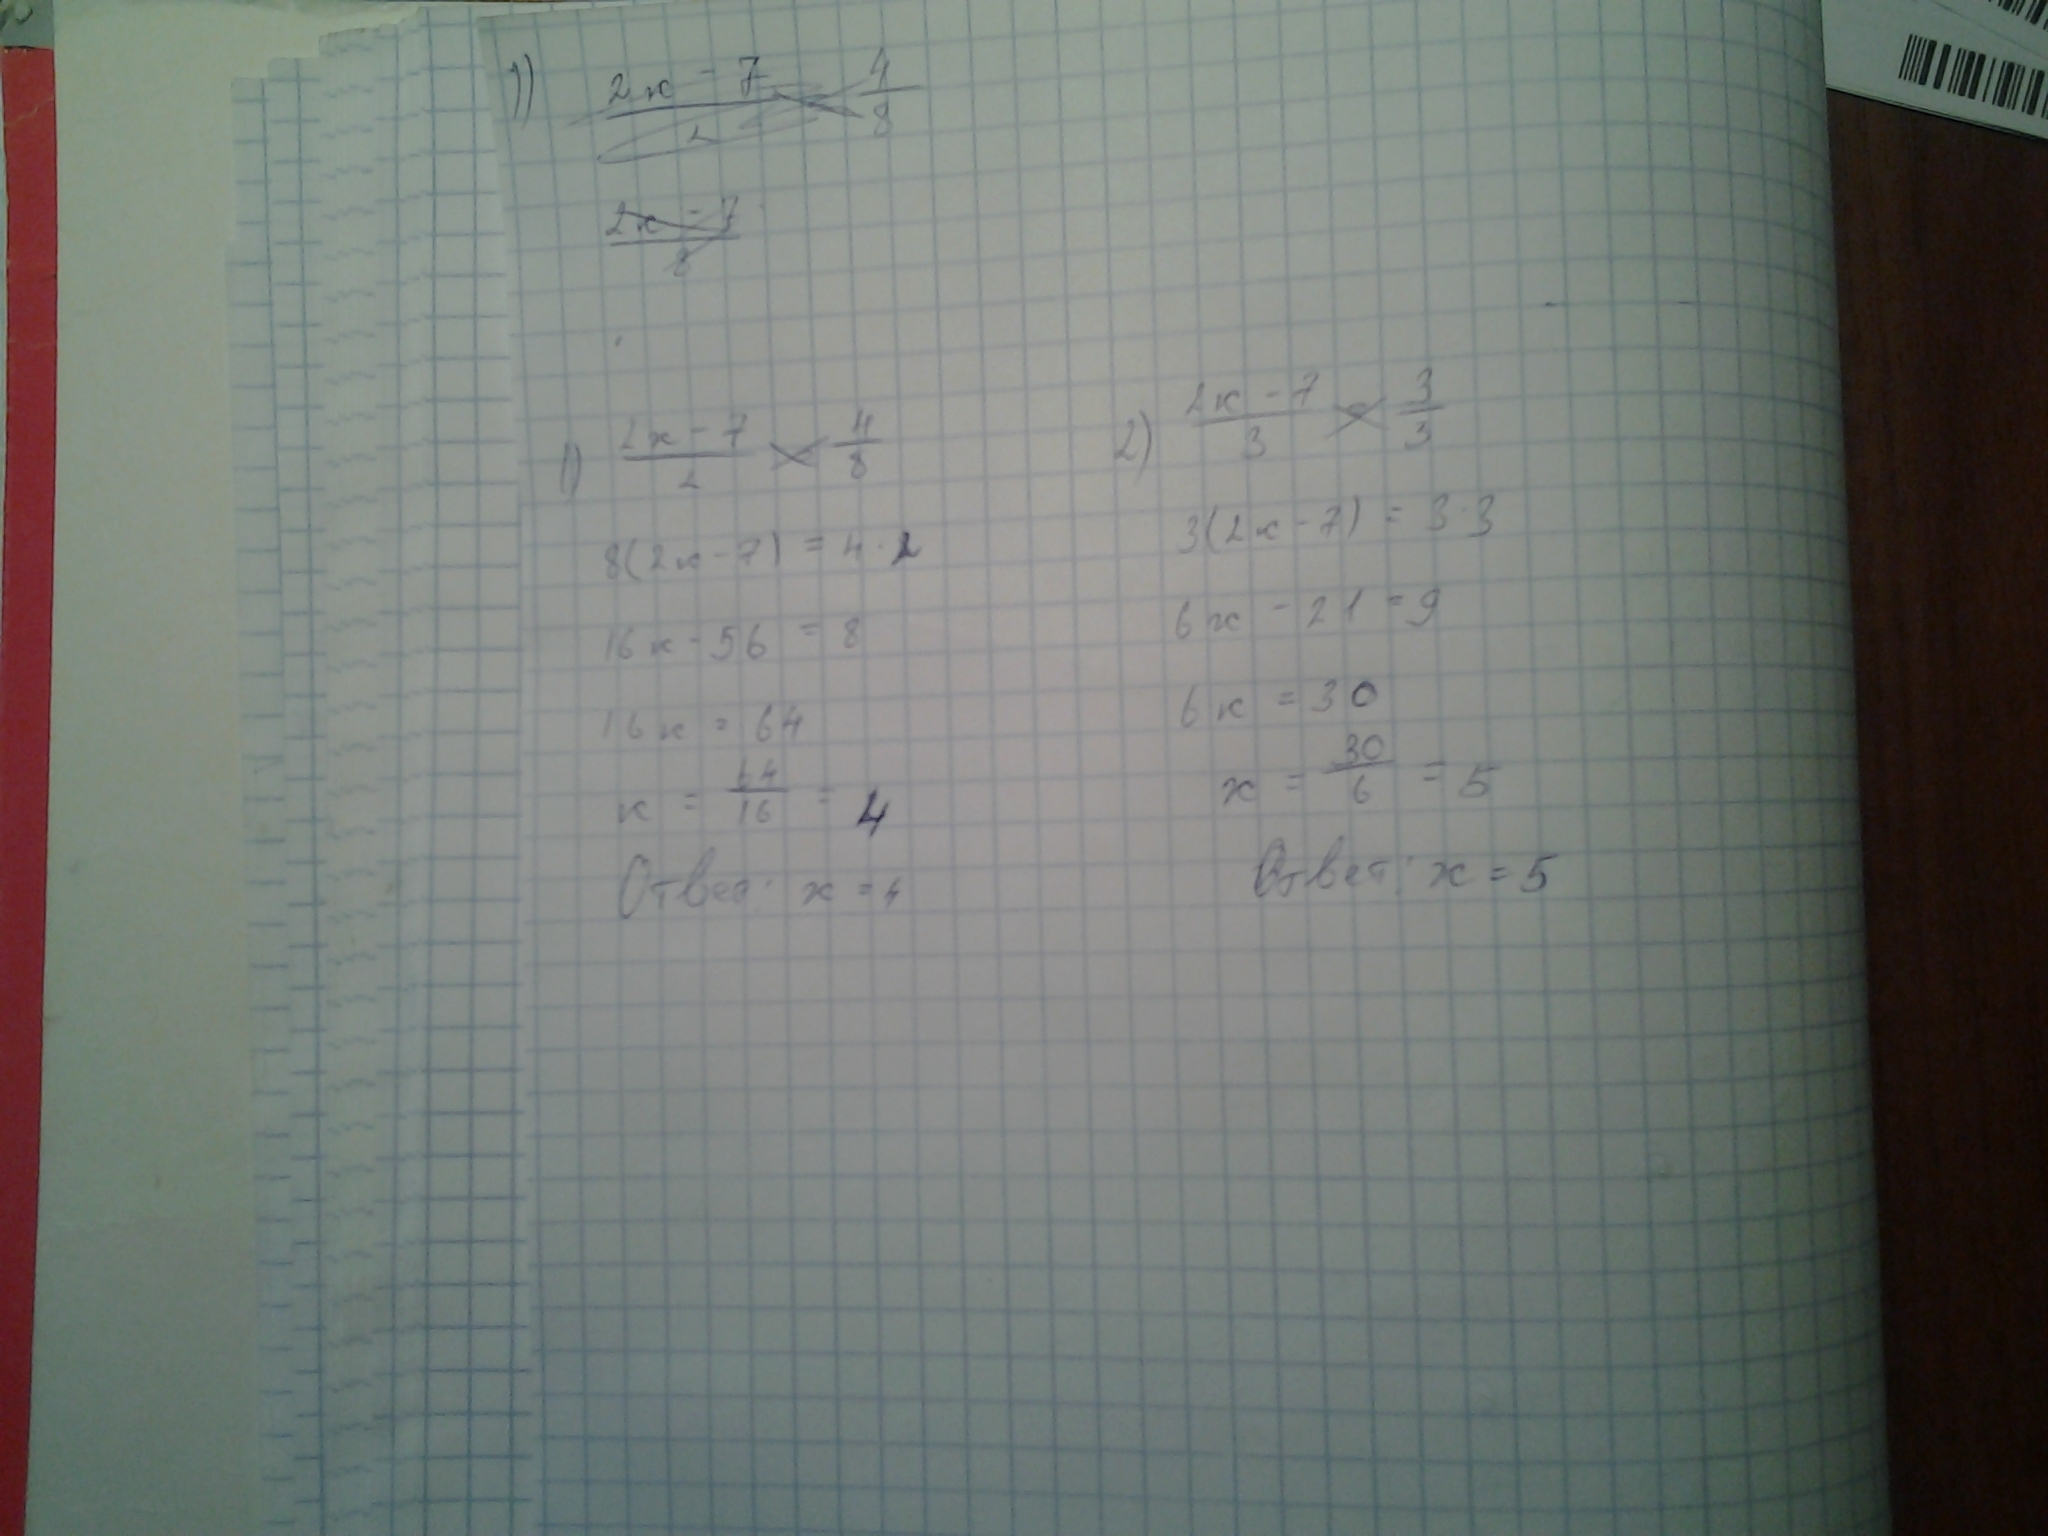 1) (2x - 7)/2 × 4/8
(2x - 7)/8
1) (2x - 7)/2 × 4/8
8(2x - 7) = 4 · 2
16x - 56 = 8
16x = 64
x = 64/16 = 4
Ответ: x = 4
2) (2x - 7)/3 × 3/3
3(2x - 7) = 3 · 3
6x - 21 = 9
6x = 30
x = 30/6 = 5
Ответ: x = 5